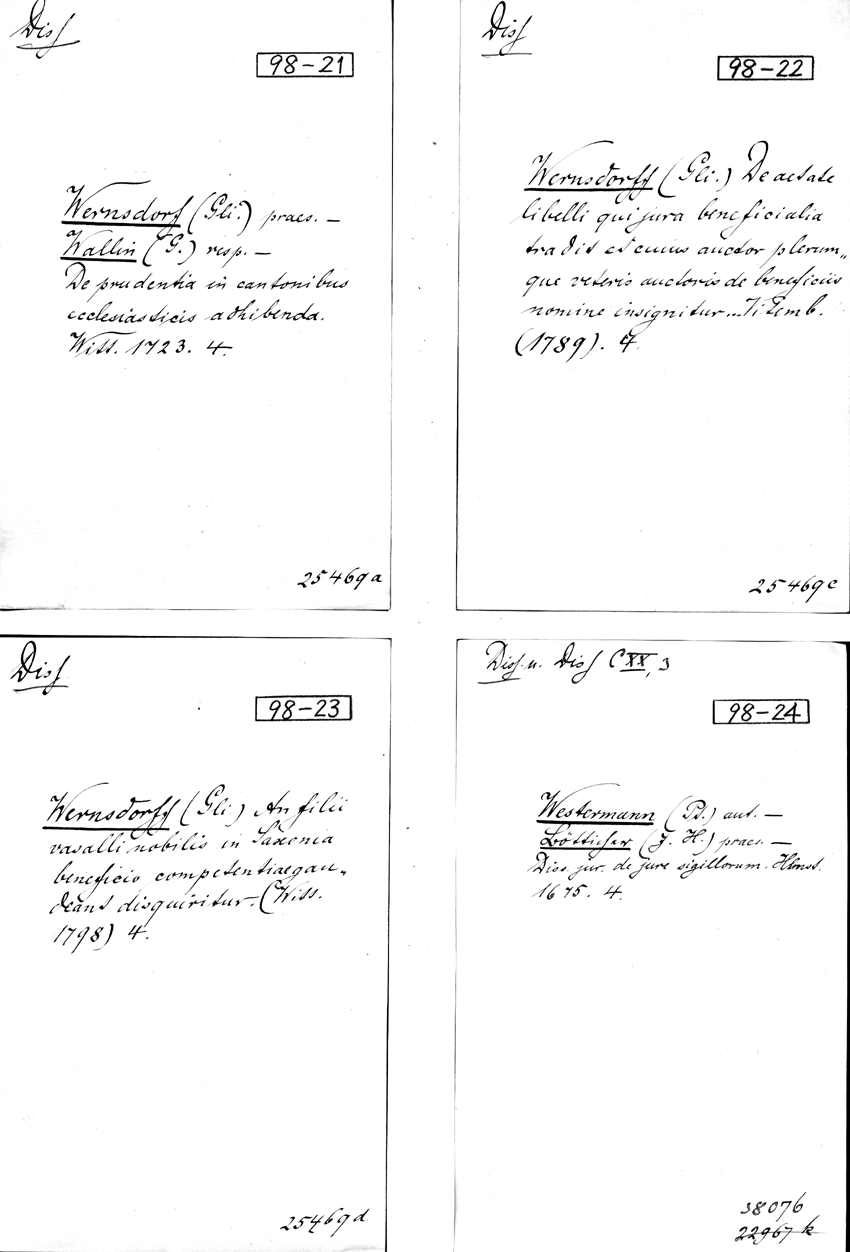 Diss
98-21
Wernsdorf (Gli.) praes. —
Wallin (G.) resp. —
De prudentia in cantonibus
ecclesiasticis adhibenda.
Witt. 1723. 4.
25469a
Diss
98-22
Wernsdorff (Gli.) De aetate
libelli qui jura beneficialia
tradit et cuius auctor plerum„
que veteris auctoris de beneficiis
nomine insignitur... Vitemb.
(1789). 4.
25469c
Diss
98-23
Wernsdorff (Gli) An filii
vasalli nobilis in Saxonia
beneficio competentiae gau„
deant disquiritur. (Witt.
1798) 4.
25469d
Diss. u. Diss CXX, 3
98-24
Westermann (Pt.) aut. —
Bötticher (J. H.) praes. —
Diss. jur. de jure sigillorum. Hlmst.
1675. 4.
38076
22967 k